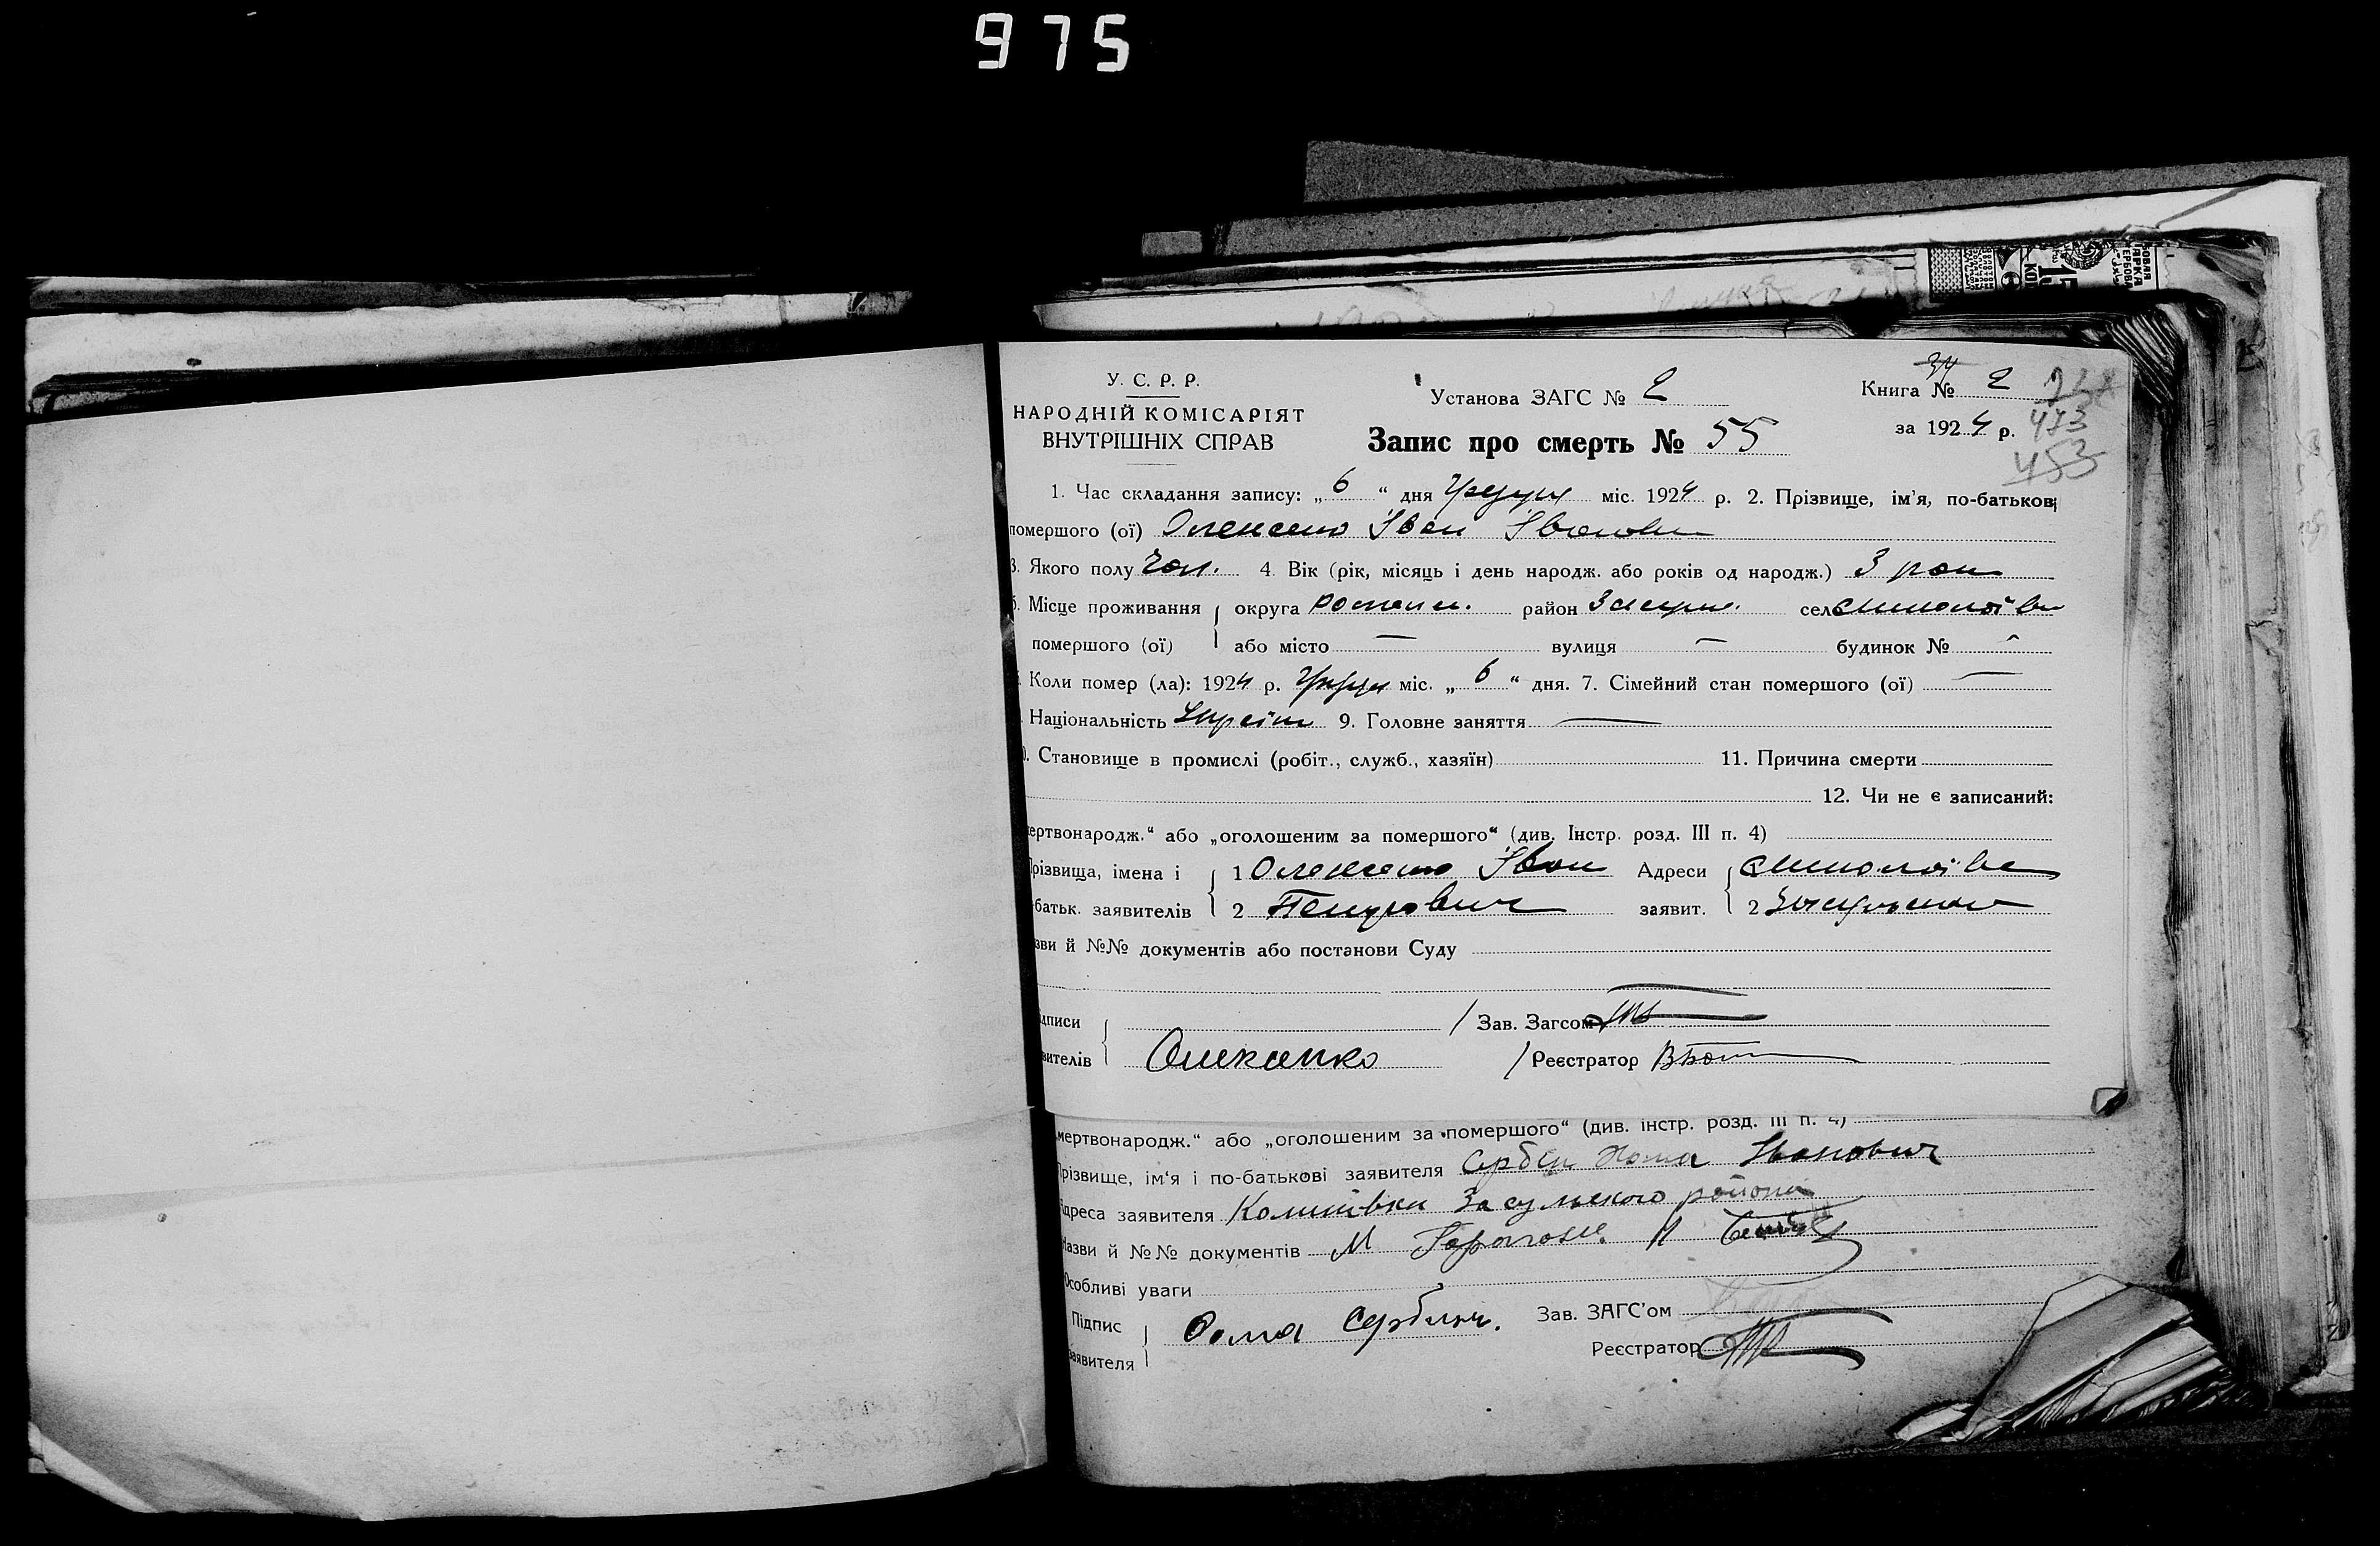 975
У. С. Р. Р.
НАРОДНІЙ КОМІСАРІЯТ
ВНУТРІШНІХ СПРАВ
Установа ЗАГС № 2
Запис про смерть № 55
34
Книга № 2
за 1924 р.
473
453
1. Час складання запису: „ 6 “ дня Грудня міс. 1924 р. 2. Прізвище, ім'я, по-батькові
помершого (ої) Олексенко Іван Іванович
3. Якого полу Чол. 4. Вік (рік, місяць і день народж. або років од народж.) 3 роки
5. Місце проживання округа Роменськ. район Засульс. село
помершого (ої) або місто — вулиця — будинок № —
Коли помер (ла): 1924 р. Грудня міс. „ 6 “ дня. 7. Сімейний стан помершого (ої) —
Національність Україн 9. Головне заняття —
. Становище в промислі (робіт., служб., хазяїн) 11. Причина смерти
12. Чи не є записаний:
ертвонародж.“ або „оголошеним за помершого“ (див. Інстр. розд. III п. 4)
різвища, імена і 1 Олексенко Іван Адреси
батьк. заявителів 2 заявит. 2 Засульського
зви й №№ документів або постанови Суду
дписи Зав. Загсом
вителів Олексенко Реєстратор
мертвонародж.“ або „оголошеним за помершого“ (див. інстр. розд. III п. 4)
різвище, ім'я і по-батькові заявителя Сербин Хома Іванович
дреса заявителя Коминівки Засульського района
Назви й №№ документів
Особливі уваги
Підпис Хома Сербин. Зав. ЗАГС'ом
заявителя Реєстратор